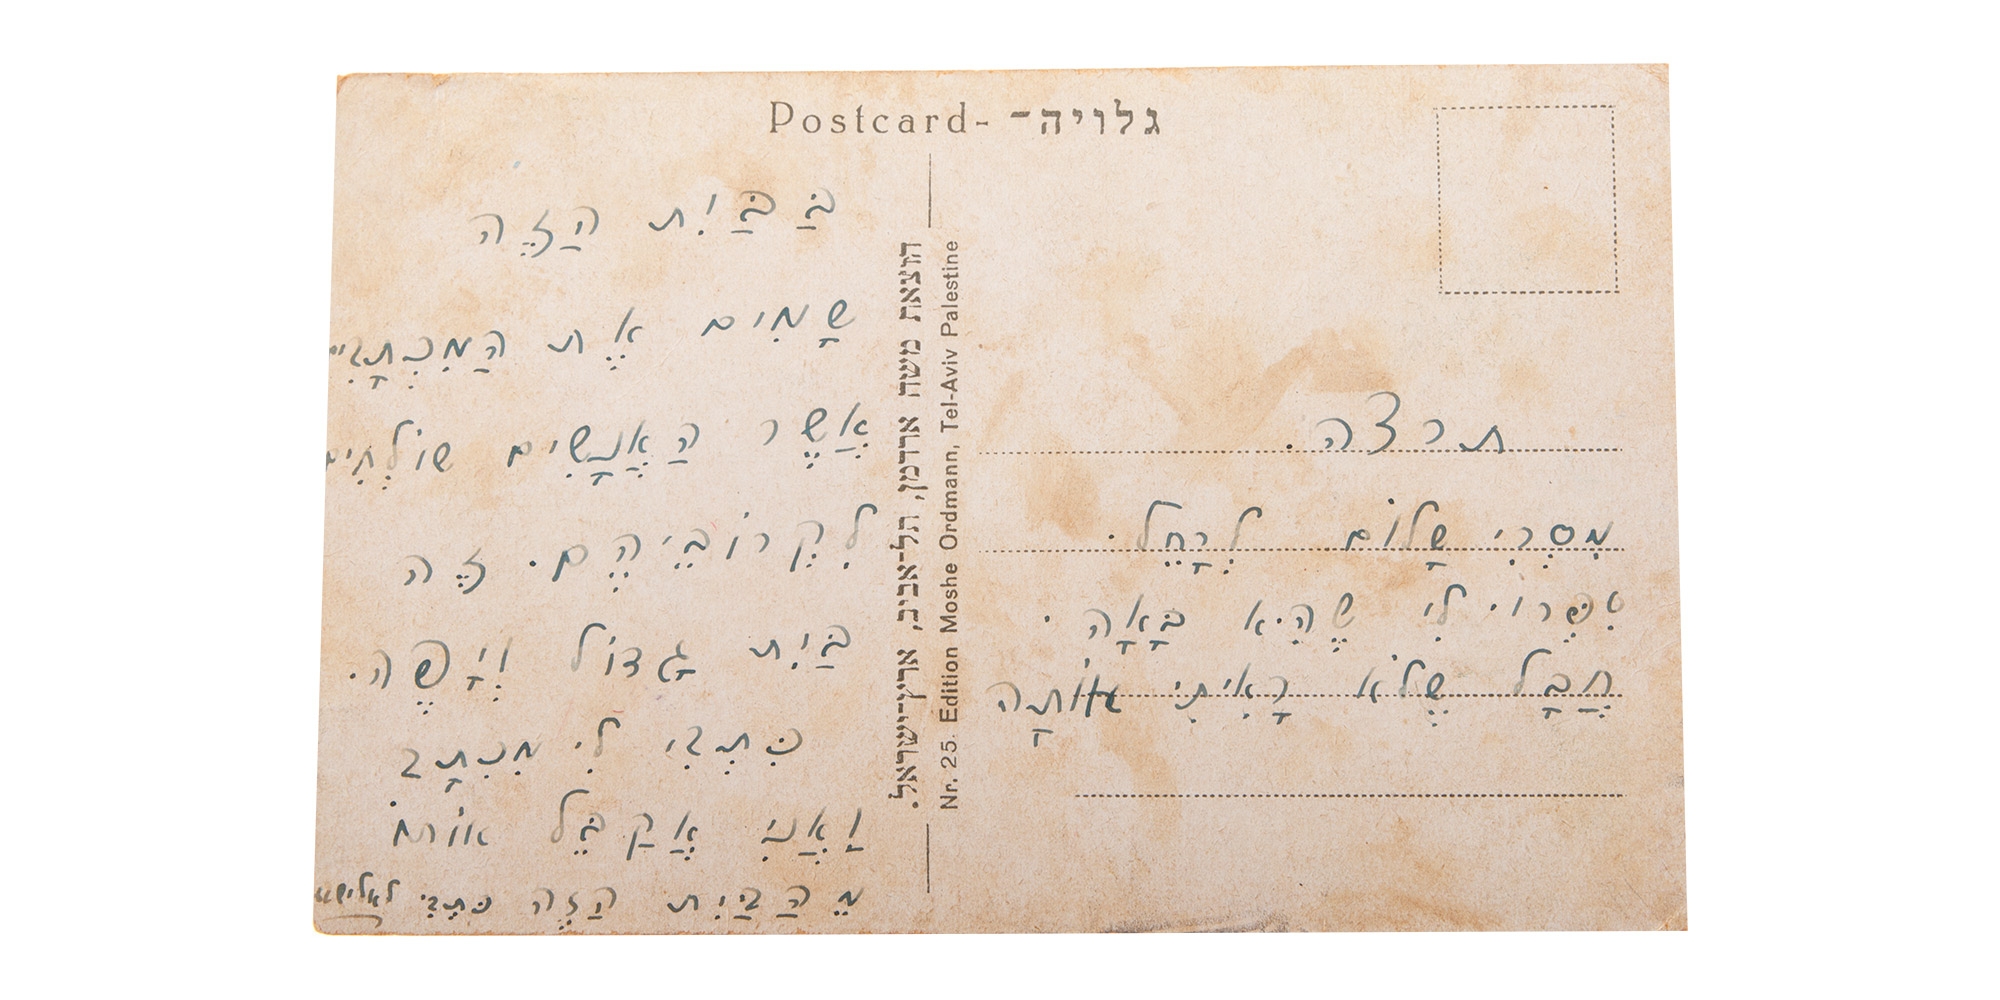 Postcard- גלויה-
בַּבַּיִת הַזֶּה
שָׂמִים אֶת הַמִּכְתָּבִי
אֲשֶׁר הָאֲנָשִׁים שׁוֹלְחִים
לִקְרוֹבֵיהֶם. זֶה
בַּיִת גָּדוֹל וְיָפֶה.
כִּתְבִי לִי מִכְתָּב
וַאֲנִי אֲקַבֵּל אוֹתוֹ
מֵהַבַּיִת הַזֶּה כִּתְבִי
הוצאת משה ארדמן, תל-אביב, ארץ-ישראל.
Nr. 25. Edition Moshe Ordmann, Tel-Aviv Palestine
תרצה.
מִסְרִי שָׁלוֹם לְרָחֵל.
סִפְּרוּ לִי שֶׁהִיא בָּאָה.
חֲבָל שֶׁלֹּא רָאִיתִי אוֹתָהּ